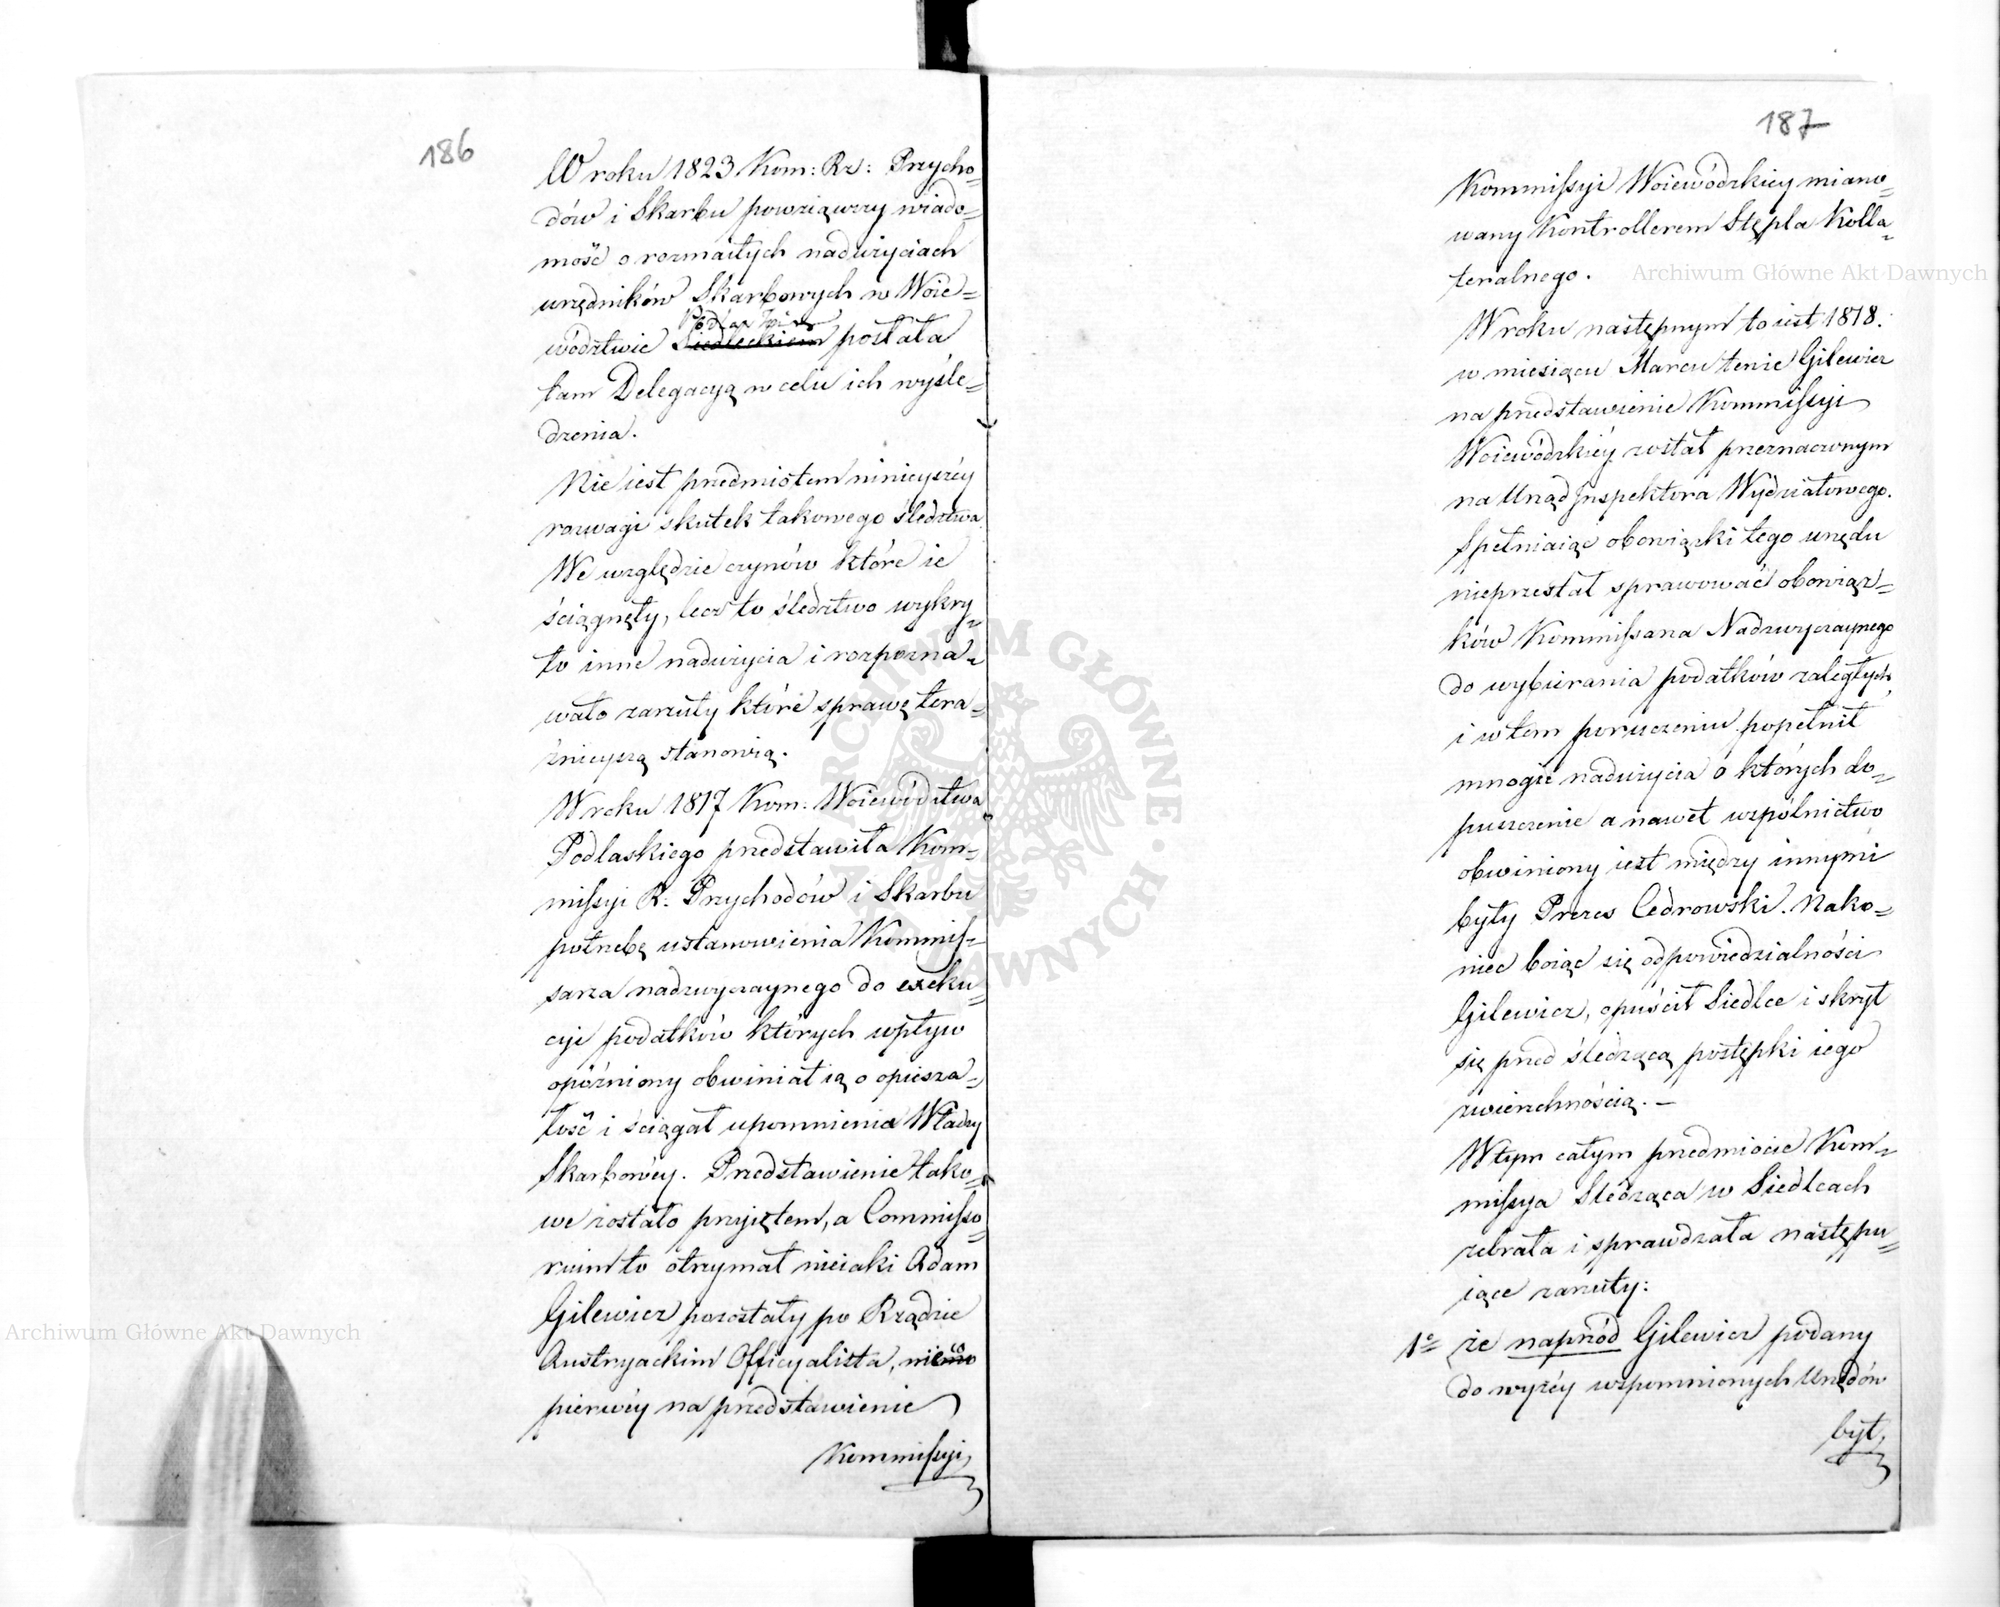 186
W roku 1823 Kom: Rz: Przycho=
dów i Skarbu powziąwszy wiado=
mość o rozmaitych nadużyciach
urzędników Skarbowych w Woie=
Podlaskim
wództwie Siedleckiem posłała
tam Delegacyą w celu ich wyśle=
dzenia.
Nie iest przedmiotem ninieyszéy
rozwagi skutek takowego śledztwa
We względzie czynów które ie
ściągnęły, lecz to śledztwo wykry=
ło inne nadużycia i rozpozna=
wało zarzuty które sprawę tera=
źnieyszą stanowią.
W roku 1817 Kom: Woiewództwa
Podlaskiego przedstawiła Kom=
missyi R: Przychodów i Skarbu
potrzebę ustanowienia Kommis=
sarza nadzwyczaynego do exeku=
cyi podatków których wpływ
opóźniony obwiniał ią o opiesza=
łość i ściągał upomnienia Władzy
Skarbowéy. Przedstawienie tako=
we zostało przyiętem, a Commisso=
rium to otrzymał nieiaki Adam
Gilewicz pozostały po Rządzie
Austryackim Officyalista, nieco
pierwéy na przedstawienie
Kommissyi
187
Kommissyi Woiewódzkiey miano=
wany Kontrollerem Stępla Kolla=
teralnego.
W roku następnym to iest 1818.
w miesiącu Marcu tenże Gilewicz
na przedstawienie Kommissyi
Woiewódzkiéy został przeznaczonym
na Urząd Inspektora Wydziałowego.
Spełniaiąc obowiązki tego urzędu
nieprzestał sprawować obowiąz=
ków Kommissarza Nadzwyczaynego
do wybierania podatków zaległych
i w tem poruczeniu popełnił
mnogie nadużycia o których do=
puszczenie a nawet wspólnictwo
obwiniony iest między innymi
były Prezes Cedrowski. Nako=
niec boiąc się odpowiedzialności
Gilewicz, opuścił Siedlce i skrył
się przed śledzącą postępki iego
zwierzchnością. —
W tym całym przedmiocie Kom=
missya Śledząca w Siedlcach
zebrała i sprawdzała następu=
iące zarzuty:
1º że naprzód Gilewicz podany
do wyżéy wspomnionych Urzędów
był,
Archiwum Główne Akt Dawnych
Archiwum Główne Akt Dawnych
ARCHIWUM GŁÓWNE AKT DAWNYCH